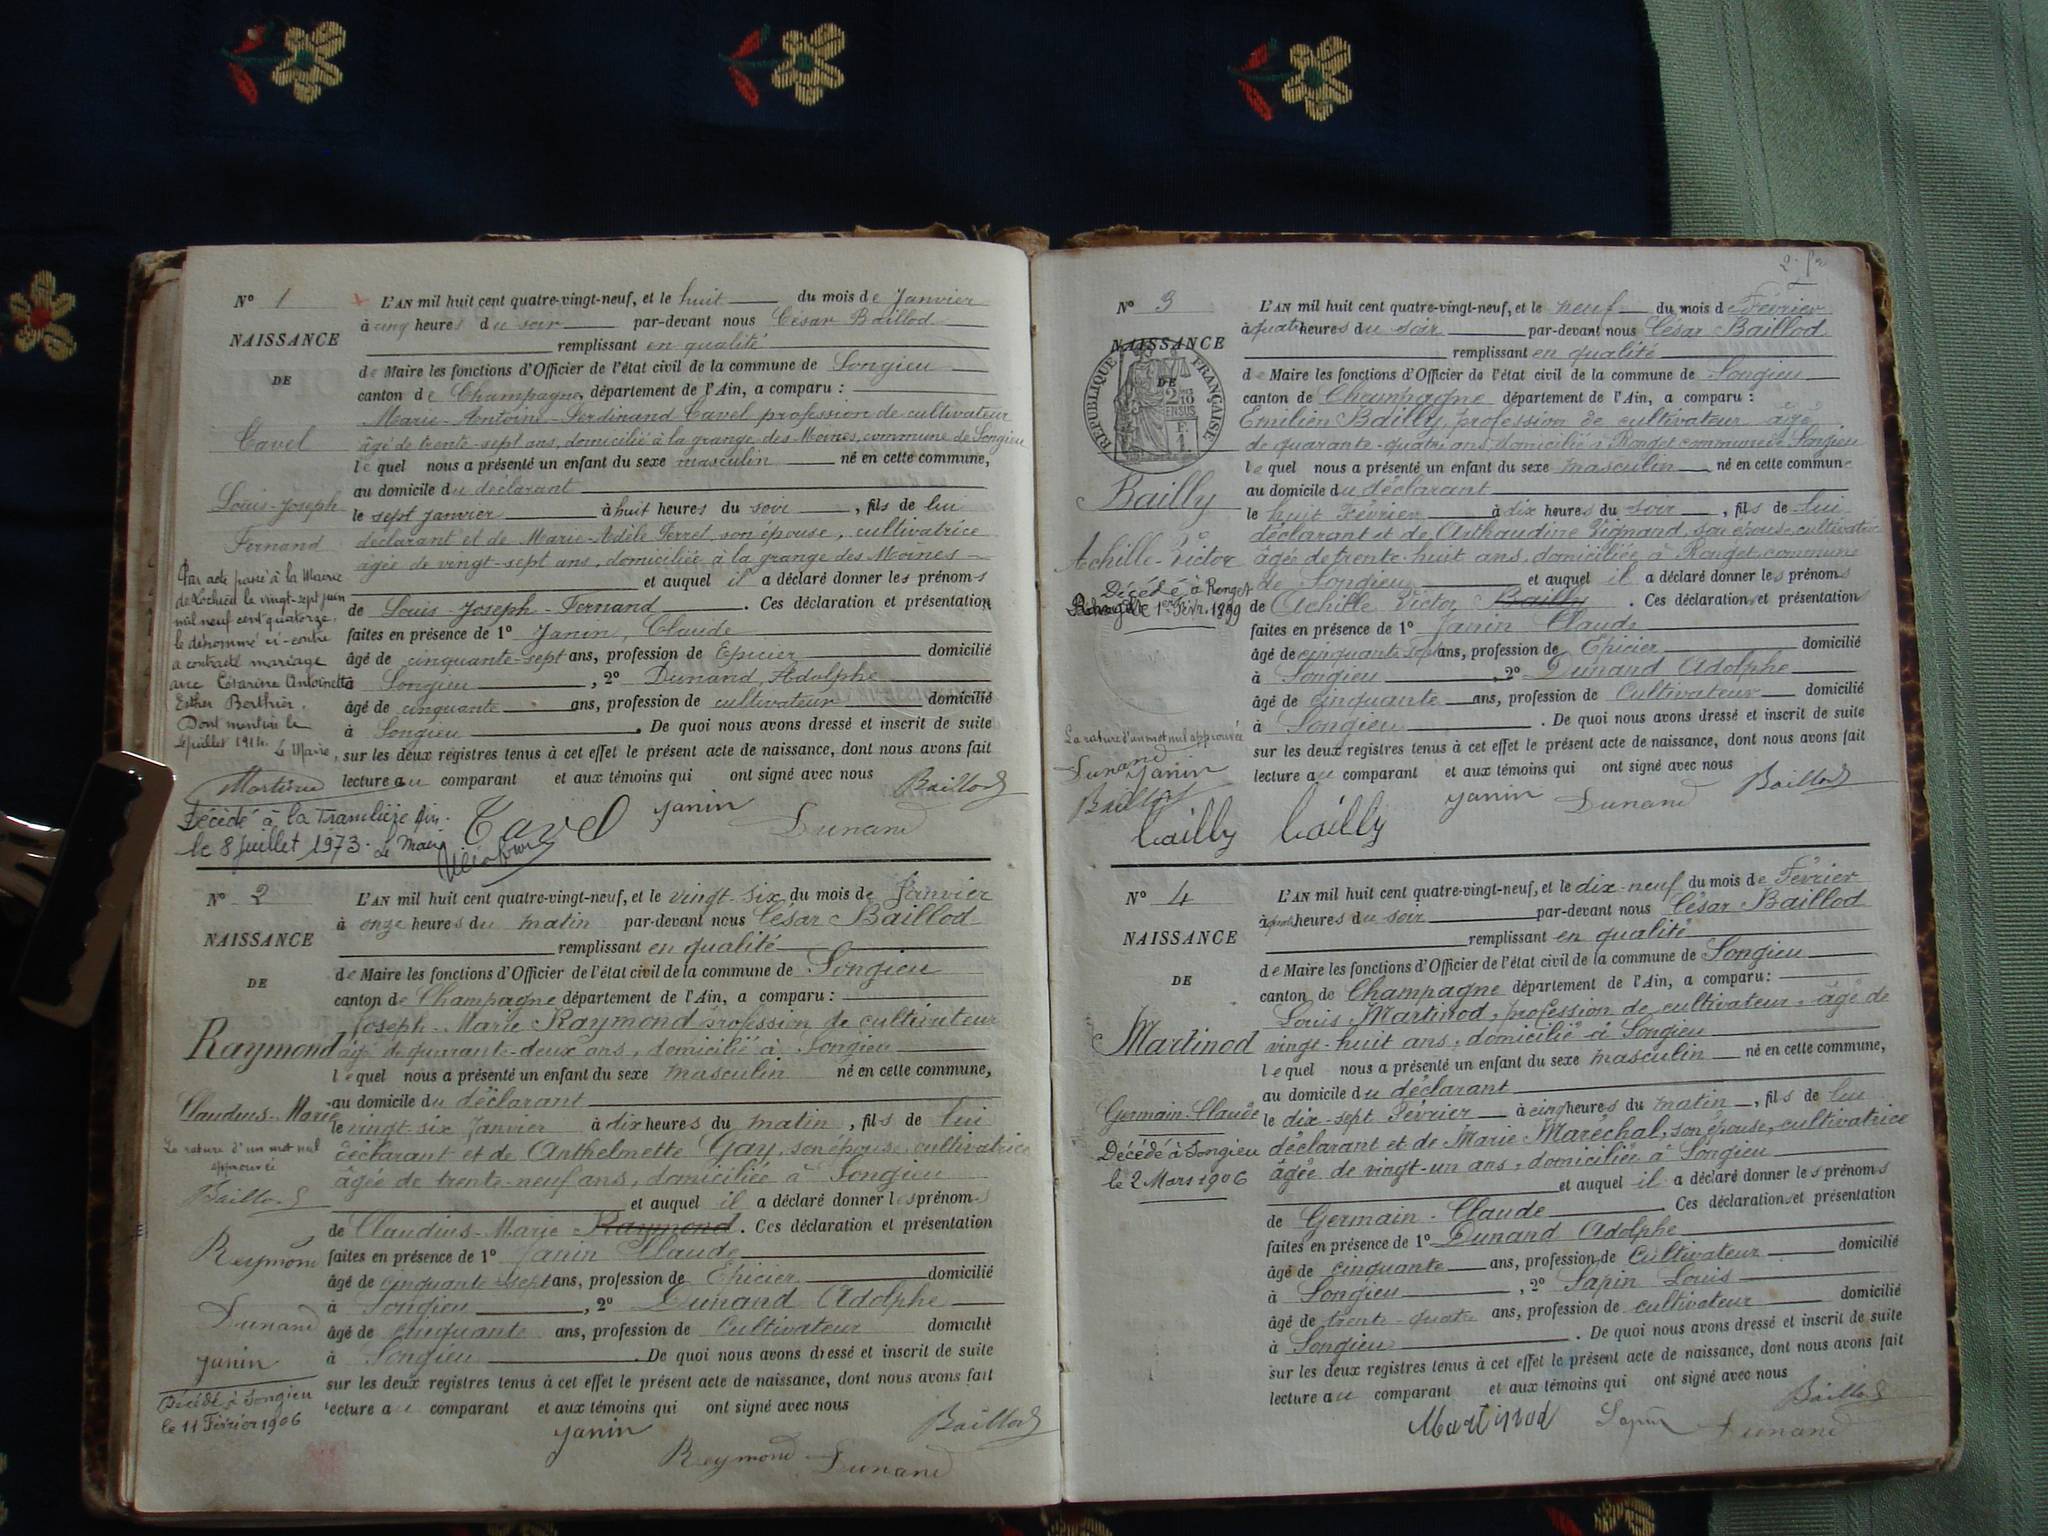 N° 1
NAISSANCE
DE
Cavel
Louis-Joseph
Fernand
Par acte passé à la Mairie
de Lochieu le vingt-sept juin
mil neuf cent quatorze,
le dénommé ci-contre
a contracté mariage
avec Césarine Antoinette
Esther Berthier.
Dont mention le
juillet 1914. Le Maire,
Décédé à La Tranclière Ain.
le 8 juillet 1973. Le Maire
L'AN mil huit cent quatre-vingt-neuf, et le huit du mois de Janvier
à cinq heures du soir par-devant nous César Baillod
remplissant en qualité
de Maire les fonctions d'Officier de l'état civil de la commune de Songieu
canton de Champagne, département de l'Ain, a comparu :
Marie-Antoine-Ferdinand Cavel profession de cultivateur
âgé de trente-sept ans, domicilié à la grange des Moines, commune de Songieu
lequel nous a présenté un enfant du sexe masculin né en cette commune,
au domicile du déclarant
le sept janvier à huit heures du soir, fils de lui
déclarant et de Marie-Adèle Ferret, son épouse, cultivatrice
âgée de vingt-sept ans, domiciliée à la grange des Moines
et auquel il a déclaré donner les prénoms
de Louis-Joseph-Fernand. Ces déclaration et présentation
faites en présence de 1° Janin, Claude
âgé de cinquante-sept ans, profession de Epicier domicilié
à Songieu, 2° Dunand, Adolphe
âgé de cinquante ans, profession de cultivateur domicilié
à Songieu. De quoi nous avons dressé et inscrit de suite
sur les deux registres tenus à cet effet le présent acte de naissance, dont nous avons fait
lecture au comparant et aux témoins qui ont signé avec nous
Baillod
Cavel Janin Dunand
N° 2
NAISSANCE
DE
Raymond
Claudius-Marie
La rature d'un mot nul
approuvée
Baillod
Reymond
Dunand
Janin
Décédé à Songieu
le 11 Février 1906
L'AN mil huit cent quatre-vingt-neuf, et le vingt-six du mois de Janvier
à onze heures du matin par-devant nous César Baillod
remplissant en qualité
de Maire les fonctions d'Officier de l'état civil de la commune de Songieu
canton de Champagne département de l'Ain, a comparu :
Joseph-Marie Raymond profession de cultivateur
âgé de quarante-deux ans, domicilié à Songieu
lequel nous a présenté un enfant du sexe masculin né en cette commune,
au domicile du déclarant
le vingt-six Janvier à dix heures du matin, fils de lui
déclarant et de Anthelmette Gay, son épouse, cultivatrice
âgée de trente-neuf ans, domiciliée à Songieu
et auquel il a déclaré donner les prénoms
de Claudius-Marie Raymond. Ces déclaration et présentation
faites en présence de 1° Janin Claude
âgé de cinquante-sept ans, profession de Epicier domicilié
à Songieu, 2° Dunand Adolphe
âgé de cinquante ans, profession de Cultivateur domicilié
à Songieu. De quoi nous avons dressé et inscrit de suite
sur les deux registres tenus à cet effet le présent acte de naissance, dont nous avons fait
lecture au comparant et aux témoins qui ont signé avec nous
Janin Baillod
Reymond Dunand
N° 3
NAISSANCE
DE
RÉPUBLIQUE FRANÇAISE
Bailly
Achille-Victor
Décédé à Ronget
le 1er Févr. 1899
La rature d'un mot nul approuvée
Dunand Janin
Baillod
bailly
L'AN mil huit cent quatre-vingt-neuf, et le neuf du mois de Février
à quatre heures du soir par-devant nous César Baillod
remplissant en qualité
de Maire les fonctions d'Officier de l'état civil de la commune de Songieu
canton de Champagne département de l'Ain, a comparu :
Emilien Bailly, profession de cultivateur âgé
de quarante-quatre ans, domicilié à Ronget commune de Songieu
lequel nous a présenté un enfant du sexe masculin né en cette commune
au domicile du déclarant
le huit Février à dix heures du soir, fils de lui
déclarant et de Arthaudine Vignand, son épouse cultivatrice
âgée de trente-huit ans, domiciliée à Ronget commune
de Songieu et auquel il a déclaré donner les prénoms
de Achille Victor Bailly. Ces déclaration et présentation
faites en présence de 1° Janin Claude
âgé de cinquante sept ans, profession de Epicier domicilié
à Songieu, 2° Dunand Adolphe
âgé de cinquante ans, profession de Cultivateur domicilié
à Songieu. De quoi nous avons dressé et inscrit de suite
sur les deux registres tenus à cet effet le présent acte de naissance, dont nous avons fait
lecture au comparant et aux témoins qui ont signé avec nous
bailly Janin Dunand Baillod
N° 4
NAISSANCE
DE
Martinod
Germain-Claude
Décédé à Songieu
le 2 Mars 1906
L'AN mil huit cent quatre-vingt-neuf, et le dix-neuf du mois de Février
à heures du soir par-devant nous César Baillod
remplissant en qualité
de Maire les fonctions d'Officier de l'état civil de la commune de Songieu
canton de Champagne département de l'Ain, a comparu :
Louis Martinod, profession de cultivateur, âgé de
vingt-huit ans, domicilié à Songieu
lequel nous a présenté un enfant du sexe masculin né en cette commune,
au domicile du déclarant
le dix-sept Février à cinq heures du matin, fils de lui
déclarant et de Marie Maréchal, son épouse, cultivatrice
âgée de vingt-un ans, domiciliée à Songieu
et auquel il a déclaré donner les prénoms
de Germain-Claude Ces déclaration et présentation
faites en présence de 1° Dunand Adolphe
âgé de cinquante ans, profession de Cultivateur domicilié
à Songieu, 2° Sapin Louis
âgé de trente-quatre ans, profession de cultivateur domicilié
à Songieu. De quoi nous avons dressé et inscrit de suite
sur les deux registres tenus à cet effet le présent acte de naissance, dont nous avons fait
lecture au comparant et aux témoins qui ont signé avec nous
Baillod
Martinod Sapin Dunand